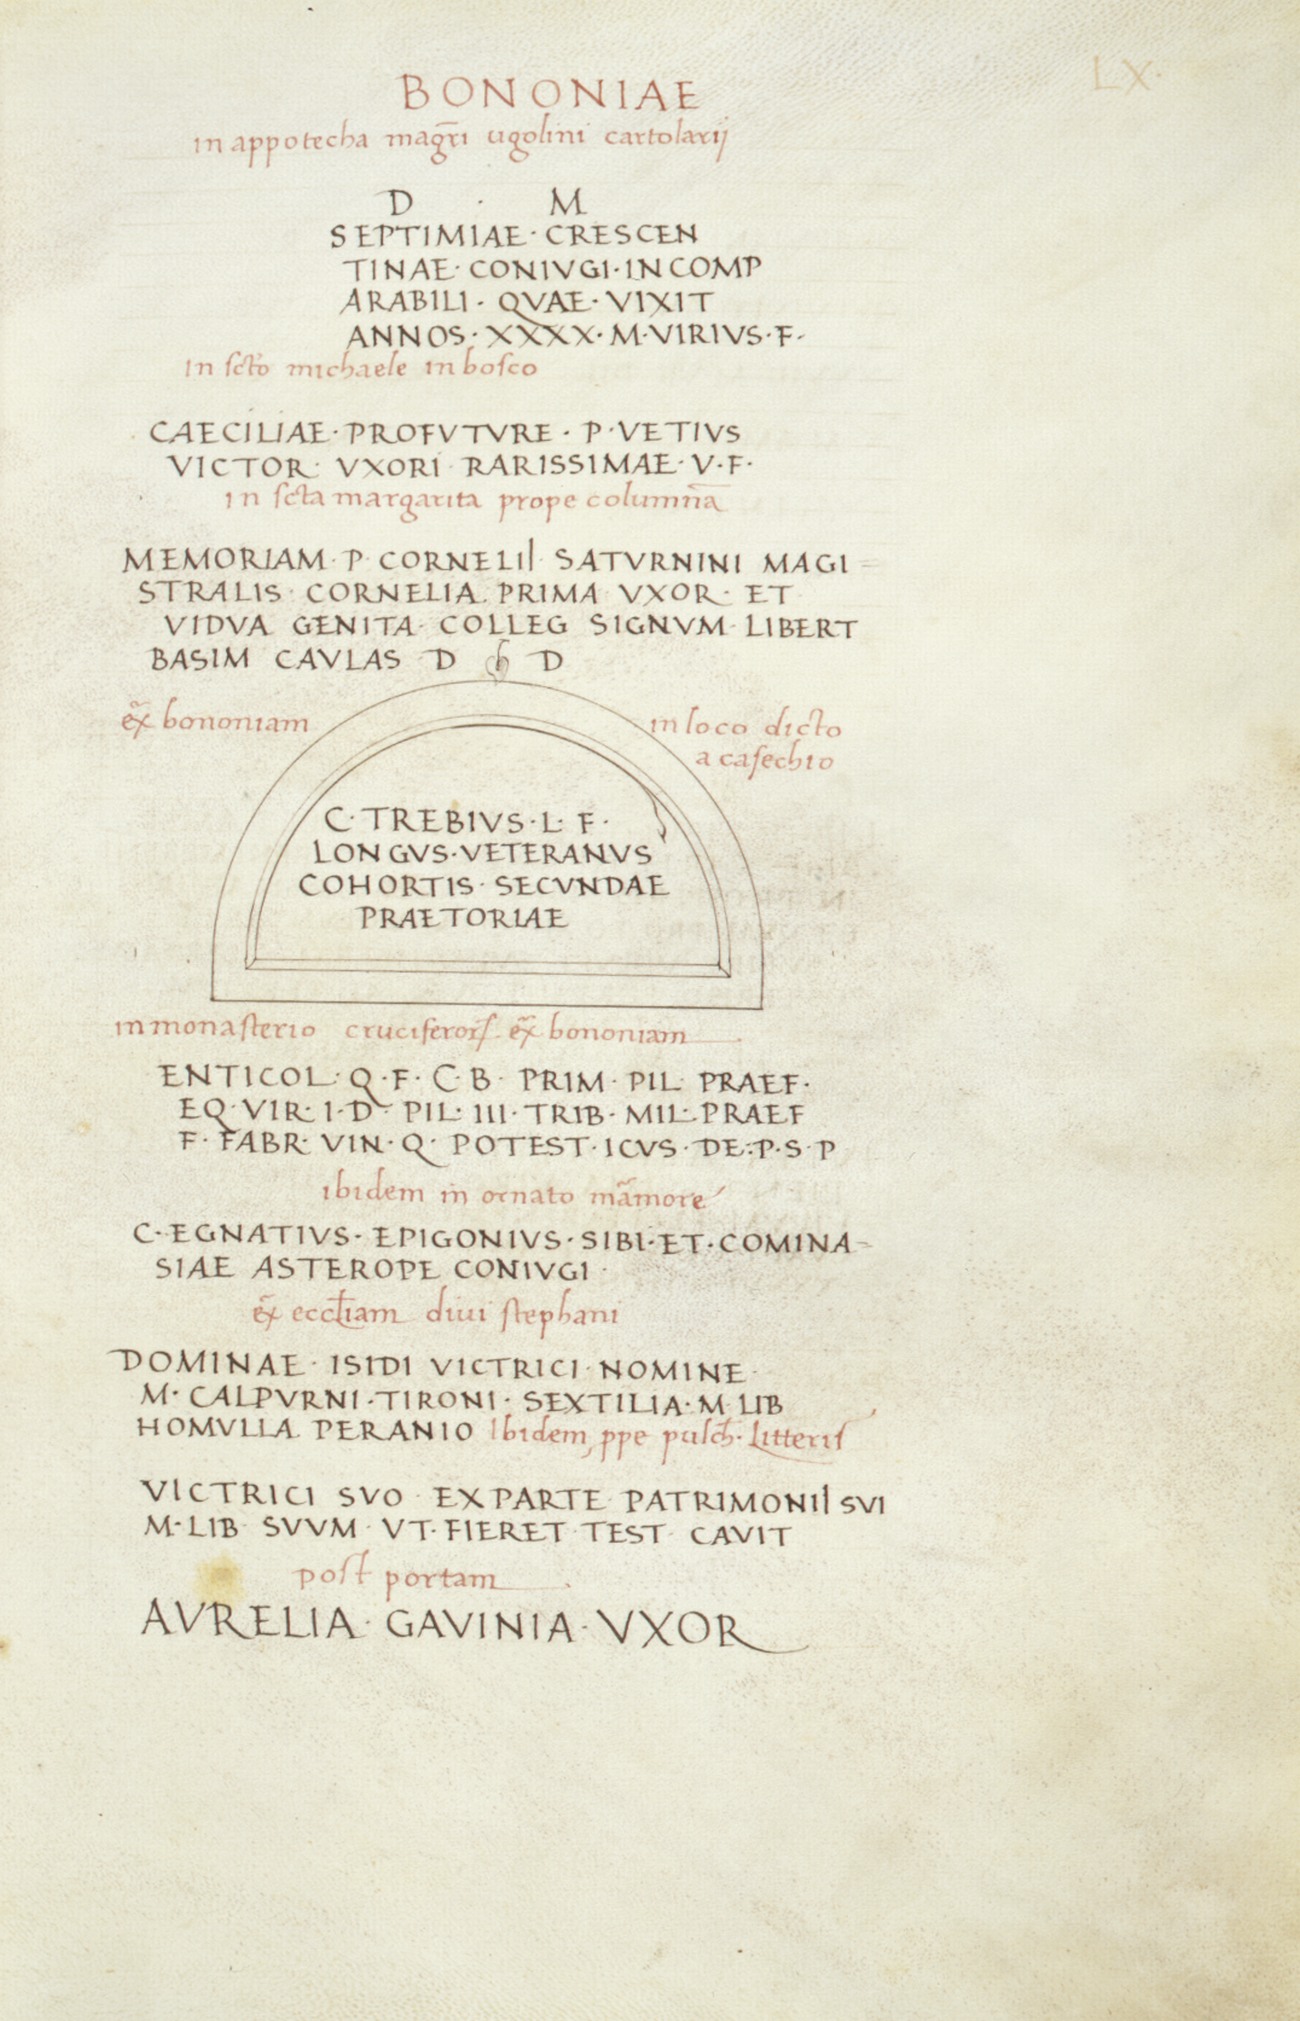 LX·
BONONIAE
in appotecha magr̄i ugolini cartolarij
D · M
SEPTIMIAE· CRESCEN
TINAE· CONIVGI· INCOMP
ARABILI· QVAE· VIXIT
ANNOS· XXXX· M·VIRIVS·F·
In scto michaele in bosco
CAECILIAE· PROFVTVRE · P·VETIVS
VICTOR· VXORI RARISSIMAE· V·F·
in scta margarita prope columnā
MEMORIAM· P· CORNELII· SATVRNINI MAGI=
STRALIS· CORNELIA PRIMA VXOR· ET
VIDVA GENITA· COLLEG SIGNVM· LIBERT
BASIM CAVLAS D D
ex̄ bononiam in loco dicto
a casechio
C· TREBIVS· L· F·
LONGVS· VETERANVS
COHORTIS· SECVNDAE
PRAETORIAE
in monasterio cruciferor ex̄ bononiam
ENTICOL· Q·F· C·B· PRIM· PIL· PRAEF·
EQ·VIR· I·D· PIL· III· TRIB· MIL· PRAEF
F· FABR· VIN·Q· POTEST· ICVS· DE·P·S·P
ibidem in ornato mārmore
C· EGNATIVS· EPIGONIVS· SIBI·ET· COMINA=
SIAE ASTEROPE CONIVGI·
ex̄ eccl̄iam divi stephani
DOMINAE· ISIDI VICTRICI· NOMINE
M· CALPVRNI· TIRONI· SEXTILIA· M· LIB
HOMVLLA PERANIO Ibidem ppe pulch· Litteris
VICTRICI SVO EX PARTE PATRIMONII SVI
M·LIB SVVM VT·FIERET TEST CAVIT
post portam
AVRELIA· GAVINIA· VXOR